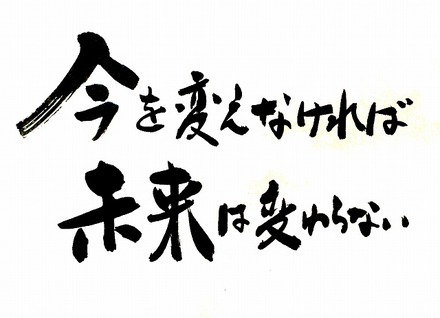 今を変えなければ
未来は変わらない